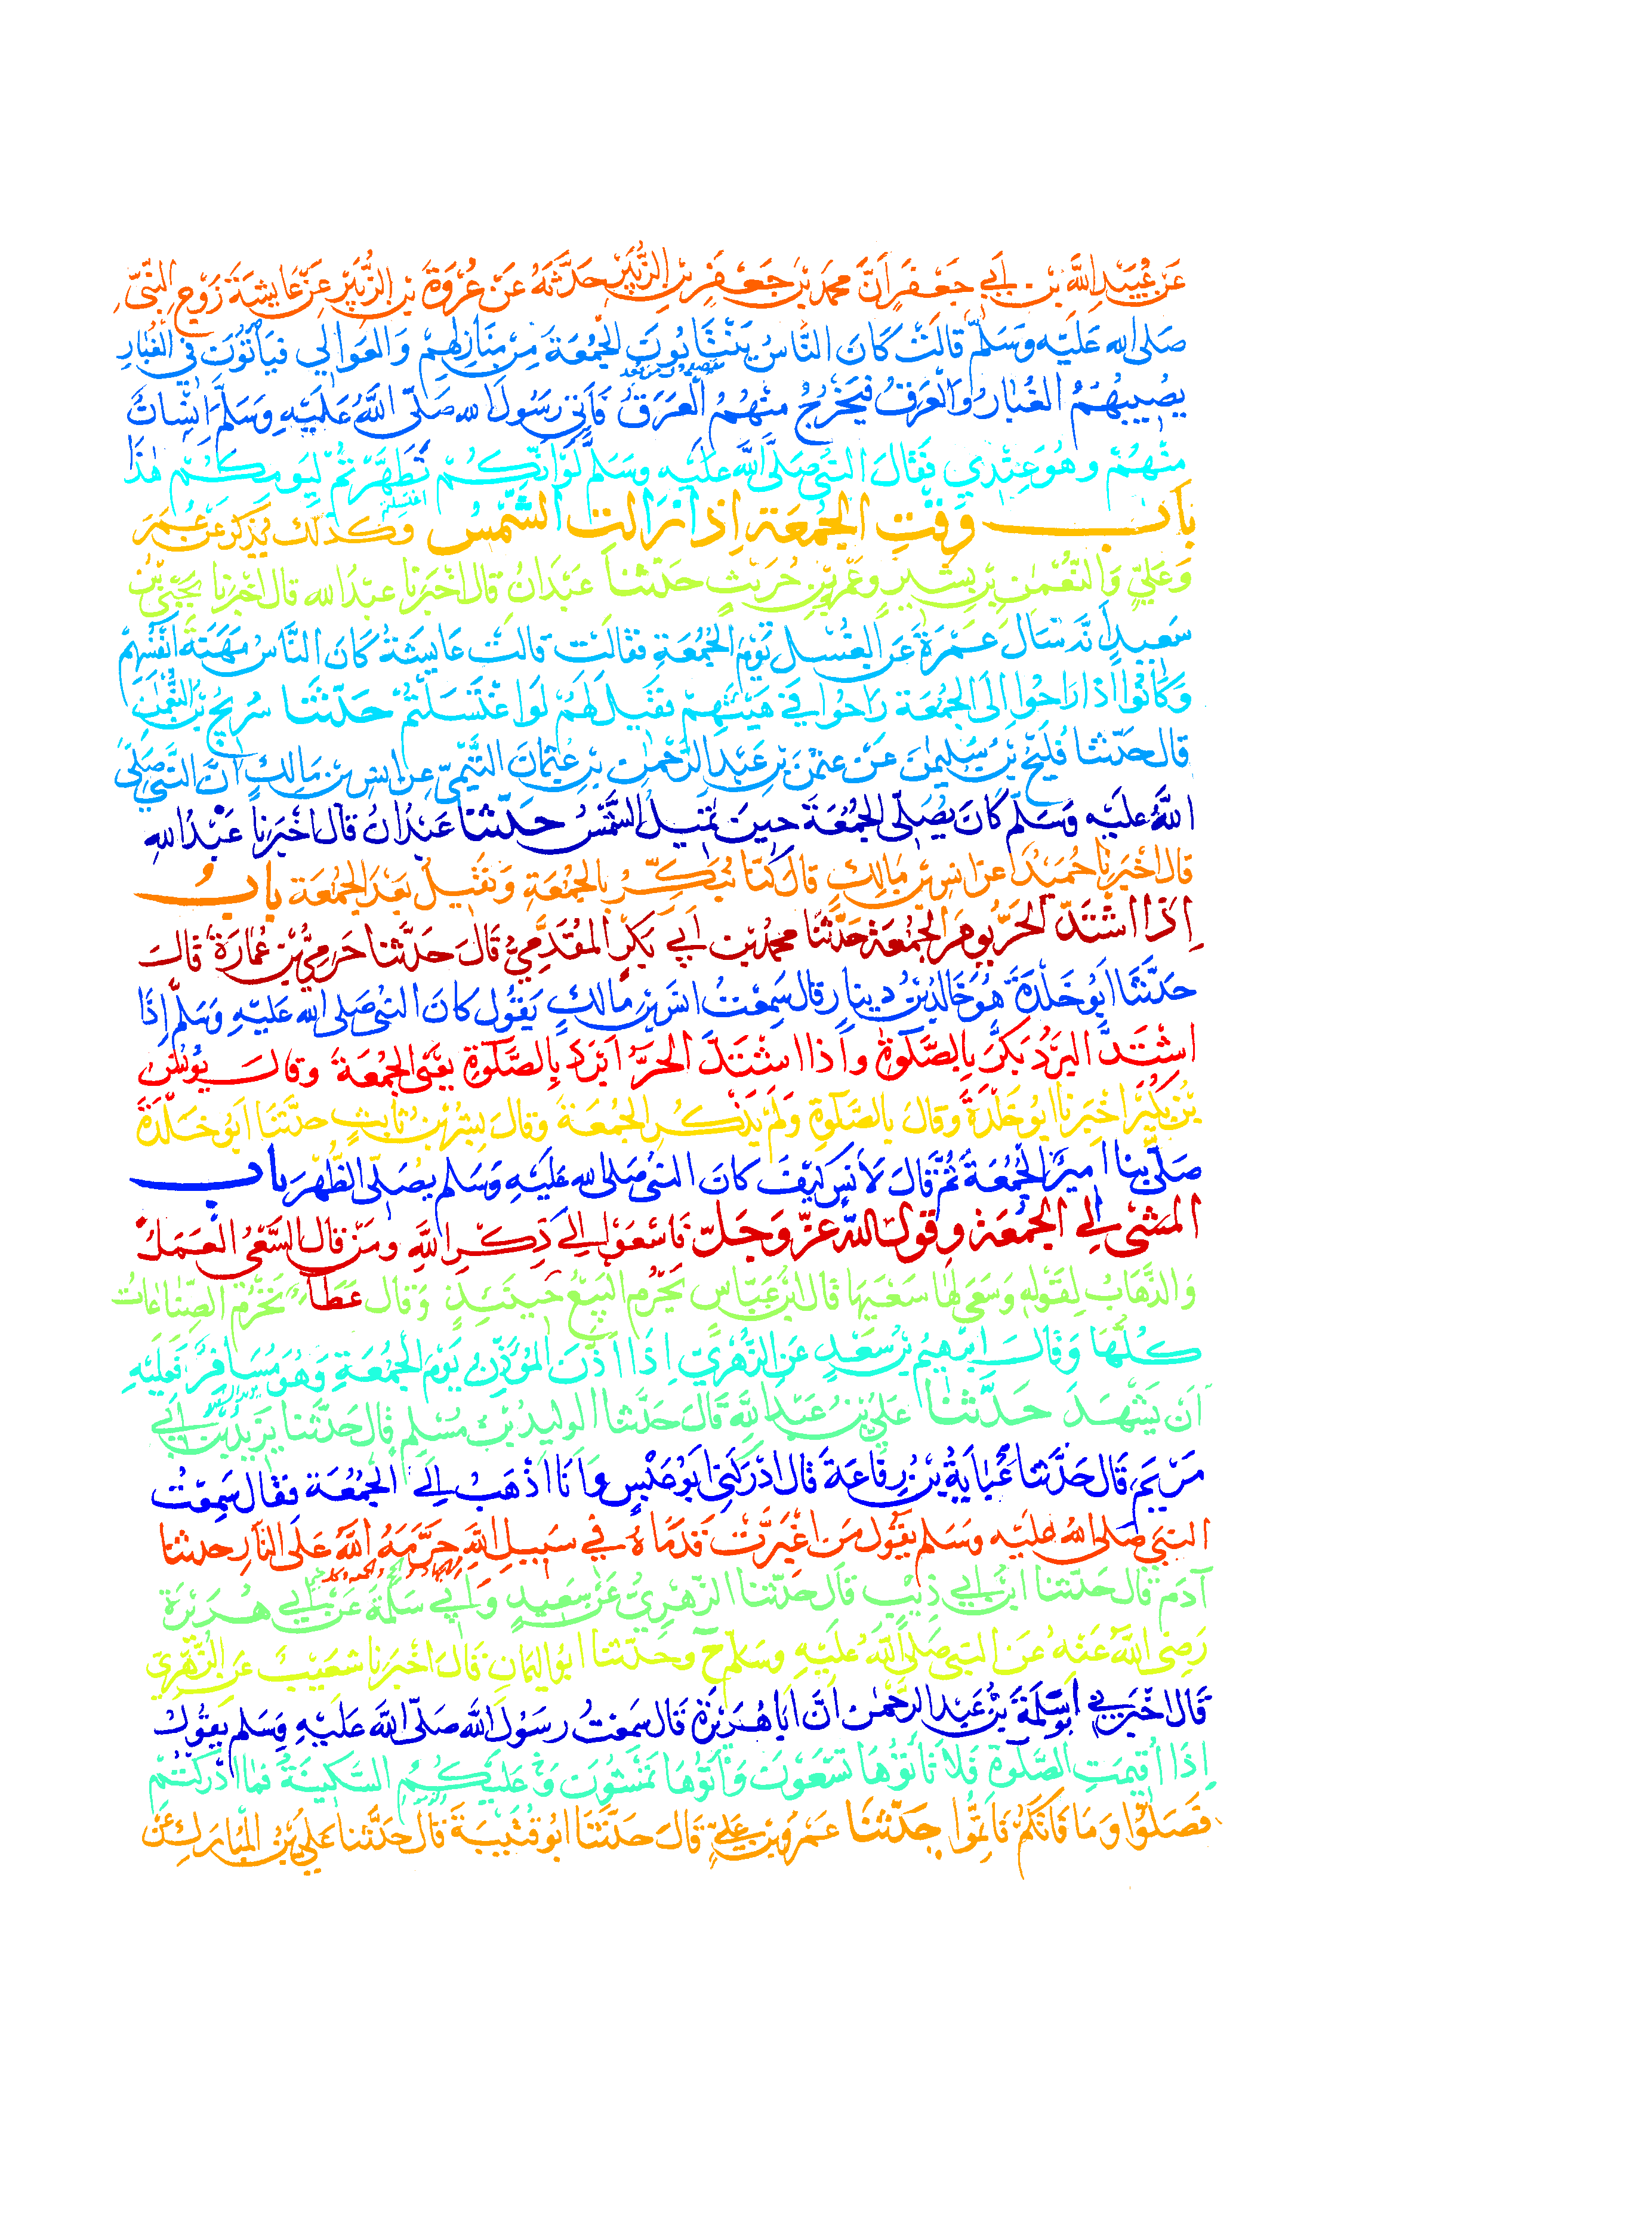 عَنْ عُبَيْدِ اللَّهِ بْنِ أَبِي جَعْفَرٍ أَنَّ مُحَمَّدَ بْنَ جَعْفَرِ بْنِ الزُّبَيْرِ حَدَّثَهُ عَنْ عُرْوَةَ بْنِ الزُّبَيْرِ عَنْ عَايِشَةَ زَوْجِ النَّبِيِّ
صَلى الله عَلَيْهِ وَسَلَّمَ قَالَتْ كَانَ النَّاسُ يَنْتَابُونَ الجُمُعَةَ مِنْ مَنَازِلِهِمْ وَالعَوَالِي فَيَأْتُونَ فِي الغُبَارِ
يُصِيبُهُمُ الغُبَارُ وَالْعَرَقُ فَيَخْرُجُ مِنْهُمُ الْعَرَقُ فَأَتَى رَسُولَ الله صَلَّى اللَّهُ عَلَيْهِ وَسَلَّمَ انْسَانٌ
مِنْهُمْ وهُوَ عِنْدِي فَقَالَ النبيُّ صَلَّى اللَّه عَلَيْهِ وَسَلَّم لَوْ انَّكُمْ تَطَهَّرْتُمْ لِيَوْمِكُمْ هَذَا
بَابُ وَقْتِ الجُمُعَة اِذَا زَالَت الشَّمْسُ وكَذلك يُذكَرُ عَنْ عُمَرَ
وَعَلِيٍّ وَالنُّعْمٰنِ بْنِ بَشِيرٍ وعَمْرِو بْنِ حُرَيْثٍ حَدَّثَنَا عَبْدَانُ قال اخْبَرَنَا عَبْدُ الله قال اخْبَرَنَا يَحْيَى بْنُ
سَعِيدٍ أَنَّهُ سَالَ عَمْرَةَ عَنِ الغُسْلِ يَوْمَ الجُمُعَةِ فَقَالَتْ قَالَتْ عَايِشَةُ كَانَ النَّاسُ مَهَنَةَ انْفُسِهِمْ
وَكَانُوا اذا رَاحُوا الَى الجُمُعَة رَاحُوا فِي هَيْئَتِهِمْ فَقِيلَ لَهُمْ لَوِ اغْتَسَلْتُمْ حَدَّثَنَا سُرَيْجُ بْنُ النُّعْمٰنِ
قال حَدَّثَنَا فُلَيْحُ بْنُ سُلَيْمٰنَ عَنْ عُثمٰنَ بْنِ عَبْدِ الرَّحْمٰنِ بْنِ عُثمَانَ التَّيْمِيّ عن انسِ بْنِ مَالِكٍ أَنَّ النَّبِيَّ صَلَّى
اللَّهُ عَلَيْهِ وَسَلَّمَ كَانَ يُصَلِّي الجُمُعَةَ حِينَ تَمِيلُ الشَّمْسُ حَدَّثَنَا عَبْدَانُ قَالَ اخْبَرَنا عَبْدُ اللهِ
قال اخْبَرَنَا حُمَيْدٌ عن انس بْنِ مَالِكٍ قال كُنَّا نُبَكِّرُ بالجُمُعَةِ وَنَقِيلُ بَعْدَ الجُمُعَة بابُ
اِذَا اشْتَدَّ الحَرُّ يومَ الجُمُعَة حَدَّثَنَا محمدُ بْن أَبِي بَكْرٍ المُقَدَّمِيُّ قَالَ حَدَّثَنا حَرَمِيُّ بْنُ عُمَارَةَ قَالَ
حَدَّثَنَا ابُو خَلْدَةَ هُوَ خَالِدُ بْنُ دِينَار قال سَمِعْتُ انَسَ بْنَ مَالكٍ يَقُولُ كانَ النبيُّ صَلى الله عَلَيْهِ وَسَلَّمَ إِذَا
اشْتَدَّ البَرْدُ بَكَّرَ بِالصَّلَوةِ واذا اشْتَدَّ الحَرُّ ابْرَدَ بِالصَّلَوةِ يَعْنِي الجُمُعَةَ وقالَ يُونُسُ
بْنُ بُكَيْرٍ اخْبَرَنا ابُو خَلْدَةَ وقَالَ بالصَّلَوةِ وَلَمْ يَذْكُرِ الجُمُعَةَ وقَالَ بِشْرُ بْنُ ثَابِتٍ حدَّثَنَا ابُو خَلْدَةَ
صَلَّى بِنا امِيرٌ الجُمُعَةَ ثُمَّ قَالَ لأَنَسٍ كَيْفَ كَانَ النبيُّ صَلى الله عَلَيْهِ وَسَلم يُصَلِّي الظُّهْرَ بابُ
المَشْيِ إِلَى الجُمُعَة وقَولِ اللَّه عَزَّ وَجَلَّ فَاسْعَوْا إِلَى ذِكْرِ اللَّهِ ومَنْ قالَ السَّعْيُ العَمَلُ
وَالذَّهَابُ لِقَوْلِهِ وَسَعَى لَهَا سَعْيَهَا قَالَ ابْنُ عَبَّاسٍ يَحْرُم البَيْعُ حِينَئِذٍ وَقَالَ عَطَاءٌ تَحْرُمُ الصِّنَاعَاتُ
كُلُّهَا وَقَالَ ابْرٰهِيمُ بْنُ سَعْدٍ عَنِ الزُّهْرِيِّ اِذَا أَذَّنَ المُؤَذِّنُ يَوْمَ الجُمُعَةِ وَهُوَ مُسَافِرٌ فَعَلَيْهِ
أَنْ يَشْهَدَ حَدَّثَنَا عَلِيُّ بْنُ عَبْدِ اللَّهِ قَالَ حَدَّثَنَا الوليدُ بْنُ مُسْلِمٍ قال حَدَّثَنا يَزِيدُ بْنُ أَبِي
مَرْيَمَ قَال حَدَّثَنَا عَبَايَةُ بْنُ رِفَاعَةَ قَال ادْرَكَنِي ابُو عَبْسٍ وأَنَا اذْهَبُ إِلَى الجُمُعَة فقَال سَمِعْتُ
النبيَّ صَلى اللهُ عليه وَسَلم يَقُولُ مَن اغْبَرَّتْ قَدَمَاهُ فِي سَبِيلِ اللَّهِ حَرَّمَهُ اللَّهُ عَلَى النَّارِ حدثنا
آدَم قال حَدَّثنا ابْنُ أَبِي ذِيبٍ قَال حَدَّثنا الزُّهْرِيُّ عَنْ سَعِيدٍ وَأَبِي سَلَمَةَ عَنْ أَبِي هُرَيْرَةَ
رَضِيَ اللَّهُ عَنْهُ عَنِ النبي صَلَّى اللَّهُ عَلَيْهِ وسَلم ح وحَدَّثنا ابُو اليَمَانِ قَالَ اخْبَرَنا شعَيْبٌ عَنِ الزُّهْرِيِّ
قَال اخْبَرَنِي أَبُو سَلَمَةَ بْنُ عَبْدِ الرَّحْمٰنِ أَنَّ أَبَا هُرَيْرَةَ قَال سَمِعْتُ رَسُولَ اللَّه صَلَّى اللَّه عَلَيْهِ وَسَلم يَقُولُ
اِذَا أُقِيمَتِ الصَّلَوةُ فَلاَ تَأْتُوهَا تَسْعَوْنَ وَأْتُوهَا تَمْشُونَ وَعَلَيْكُمُ السَّكِينَةُ فَمَا ادْرَكْتُمْ
فَصَلُّوا وَمَا فَاتَكُمْ فَاتِمُّوا حَدَّثَنَا عَمْرُو بْنُ عَلِيٍّ قَالَ حَدَّثَنَا ابُو قُتَيْبَةَ قَالَ حَدَّثَنا عَلِيُّ بْنُ المُبَارَكِ عَنْ